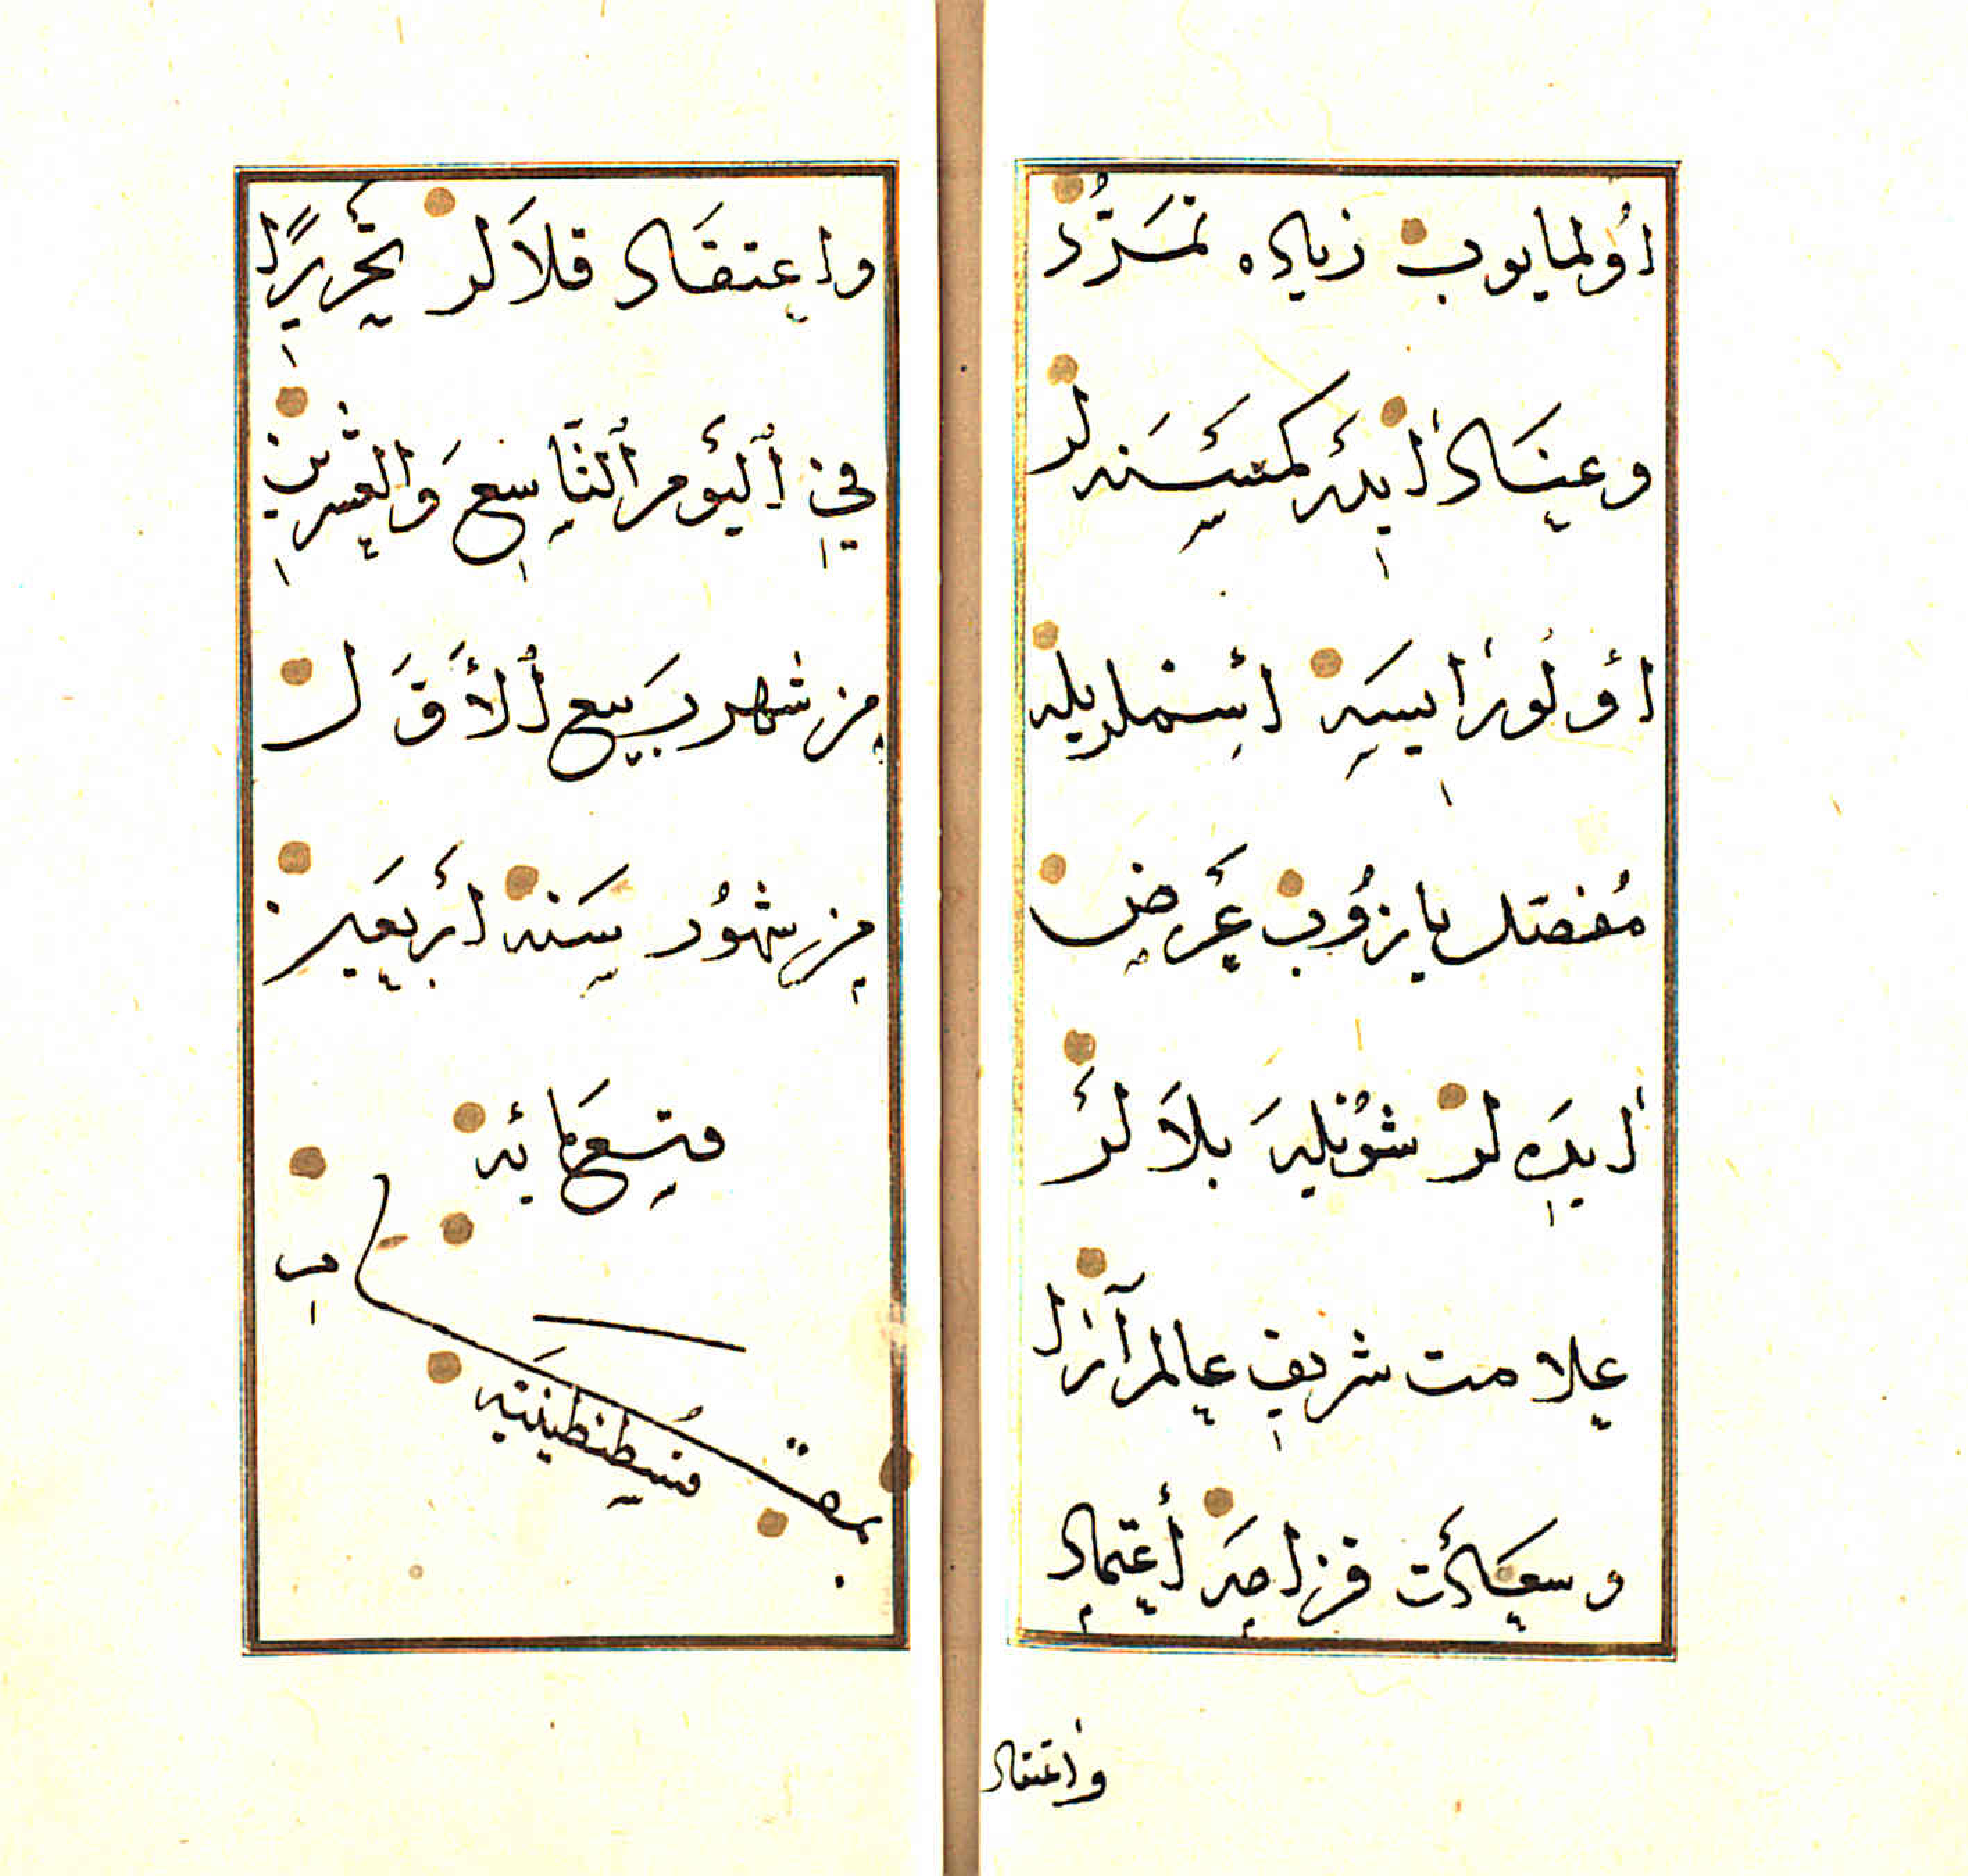 اوُلمايوب زياده تمَرُّد
وعِنَاد ايدَر كمسَنه لر
اولورايسه اسملريله
مُفصّل يازُوب عَرض
ايدَه لر شوُيله بلاَ لر
علامت شريف عالم آرا
وسعَادَت فزايه اعتماد
واعتقاد
واعتقَاد قلاَلر تحَريرًا
في اليَوم التَّاسِع وَالعشرين
من شهر ربَيع الاَوَّل
من شهوُر سَنه اَربعَين
وتسعمَائه
بمقام
قُسطنطينيّه